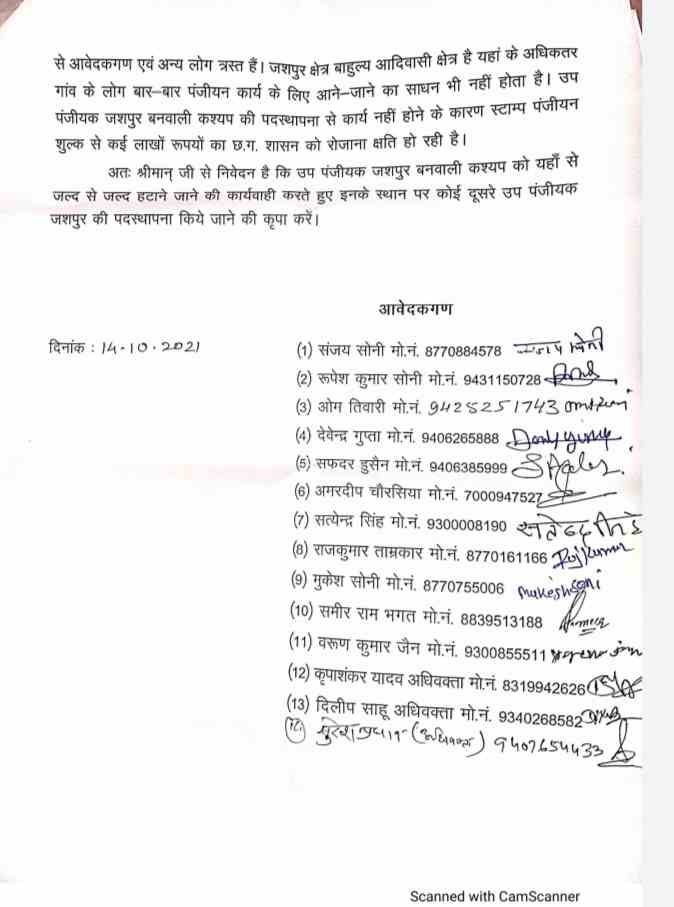 से आवेदकगण एवं अन्य लोग त्रस्त हैं। जशपुर क्षेत्र बाहुल्य आदिवासी क्षेत्र है यहां के अधिकतर
गांव के लोग बार–बार पंजीयन कार्य के लिए आने–जाने का साधन भी नहीं होता है। उप
पंजीयक जशपुर बनवाली कश्यप की पदस्थापना से कार्य नहीं होने के कारण स्टाम्प पंजीयन
शुल्क से कई लाखों रूपयों का छ.ग. शासन को रोजाना क्षति हो रही है।
अतः श्रीमान् जी से निवेदन है कि उप पंजीयक जशपुर बनवाली कश्यप को यहाँ से
जल्द से जल्द हटाने जाने की कार्यवाही करते हुए इनके स्थान पर कोई दूसरे उप पंजीयक
जशपुर की पदस्थापना किये जाने की कृपा करें।
आवेदकगण
दिनांक : 14.10.2021
(1) संजय सोनी मो.नं. 8770884578
(2) रूपेश कुमार सोनी मो.नं. 9431150728
(3) ओम तिवारी मो.नं. 9425251743
(4) देवेन्द्र गुप्ता मो.नं. 9406265888
(5) सफदर हुसैन मो.नं. 9406385999
(6) अमरदीप चौरसिया मो.नं. 7000947527
(7) सत्येन्द्र सिंह मो.नं. 9300008190
(8) राजकुमार ताम्रकार मो.नं. 8770161166 Rajkumar
(9) मुकेश सोनी मो.नं. 8770755006 mukesh soni
(10) समीर राम भगत मो.नं. 8839513188
(11) वरूण कुमार जैन मो.नं. 9300855511
(12) कृपाशंकर यादव अधिवक्ता मो.नं. 8319942626
(13) दिलीप साहू अधिवक्ता मो.नं. 9340268582
(अधिवक्ता) 9407654433
Scanned with CamScanner